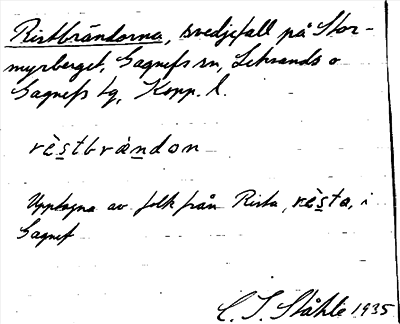 Ristbrändorna, svedjefall på Stor-
myrberget, Gagnefs sn, Leksands o
Gagnefs tg, Kopp. l.
rèstbrändon
Upptagna av folk från Rista, rèsta, i
Gagnef
C. I. Ståhle 1935